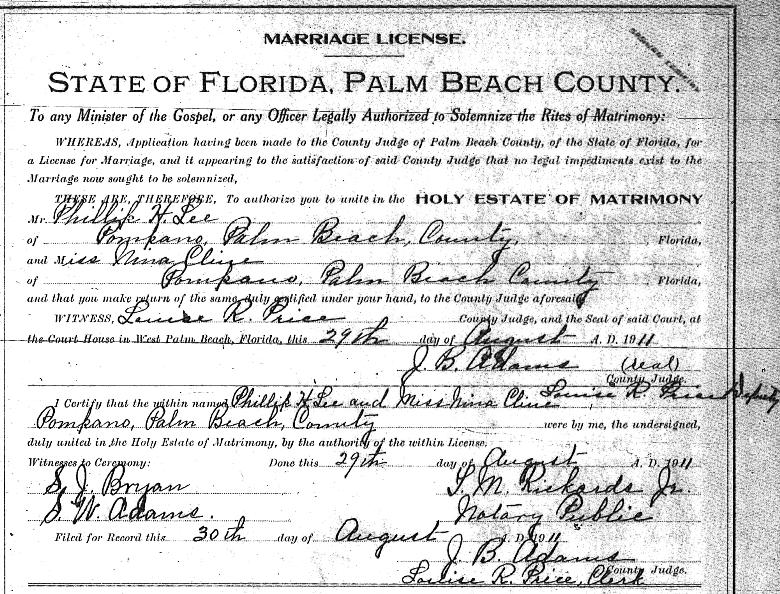 MARRIAGE LICENSE.
STATE OF FLORIDA, PALM BEACH COUNTY.
To any Minister of the Gospel, or any Officer Legally Authorized to Solemnize the Rites of Matrimony:
WHEREAS, Application having been made to the County Judge of Palm Beach County, of the State of Florida, for
a License for Marriage, and it appearing to the satisfaction of said County Judge that no legal impediments exist to the
Marriage now sought to be solemnized,
THESE ARE, THEREFORE, To authorize you to unite in the HOLY ESTATE OF MATRIMONY
Mr. Phillip H. Lee
of Pompano, Palm Beach, County, Florida,
and Miss Nina Cline
of Pompano, Palm Beach County, Florida,
and that you make return of the same, duly certified under your hand, to the County Judge aforesaid
WITNESS, Louise R. Price County Judge, and the Seal of said Court, at
the Court House in West Palm Beach, Florida, this 29th day of August A. D. 1911
J. B. Adams (seal)
County Judge.
Louise R Price Deputy
I Certify that the within named Phillip H Lee and Miss Nina Cline
Pompano, Palm Beach, County were by me, the undersigned,
duly united in the Holy Estate of Matrimony, by the authority of the within License.
Witnesses to Ceremony: Done this 29th day of August A. D. 1911
S. J. Bryan J. M. Rickards Jr.
S. W. Adams. Notary Public
Filed for Record this 30th day of August A. D. 1911
J. B. Adams
County Judge.
Louise R. Price, Clerk